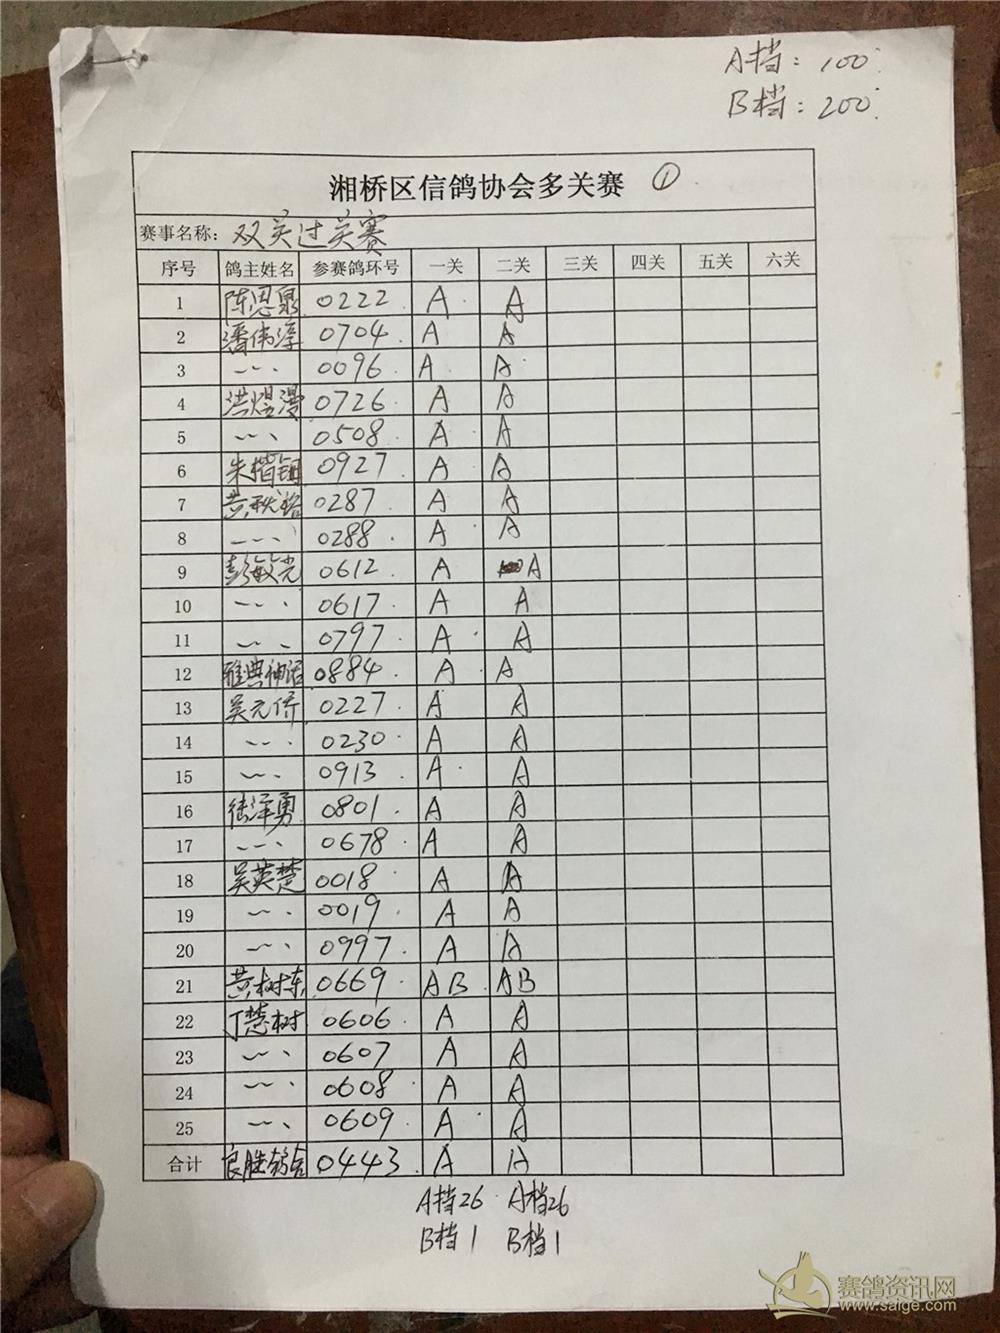 A档：100
B档：200
湘桥区信鸽协会多关赛 ①
赛事名称：双关过关赛
序号 鸽主姓名 参赛鸽环号 一关 二关 三关 四关 五关 六关
1 陈恩泉 0222 A A
2 潘伟淳 0704 A A
3 〃 0096 A A
4 洪熠漫 0726 A A
5 〃 0508 A A
6 朱楷钿 0927 A A
7 黄秋裕 0287 A A
8 〃 0288 A A
9 彭敏光 0612 A A
10 〃 0617 A A
11 〃 0797 A A
12 雅典神话 0884 A A
13 吴元侨 0227 A A
14 〃 0230 A A
15 〃 0913 A A
16 洋勇 0801 A A
17 〃 0678 A A
18 吴英楚 0018 A A
19 〃 0019 A A
20 〃 0997 A A
21 黄树东 0669 AB AB
22 丁慧树 0606 A A
23 〃 0607 A A
24 〃 0608 A A
25 〃 0609 A A
合计 良胜鸽舍 0443 A A
A档26 A档26
B档1 B档1
赛鸽资讯网
www.saige.com